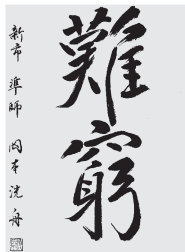 難窮
新市 準師 岡本洗舟